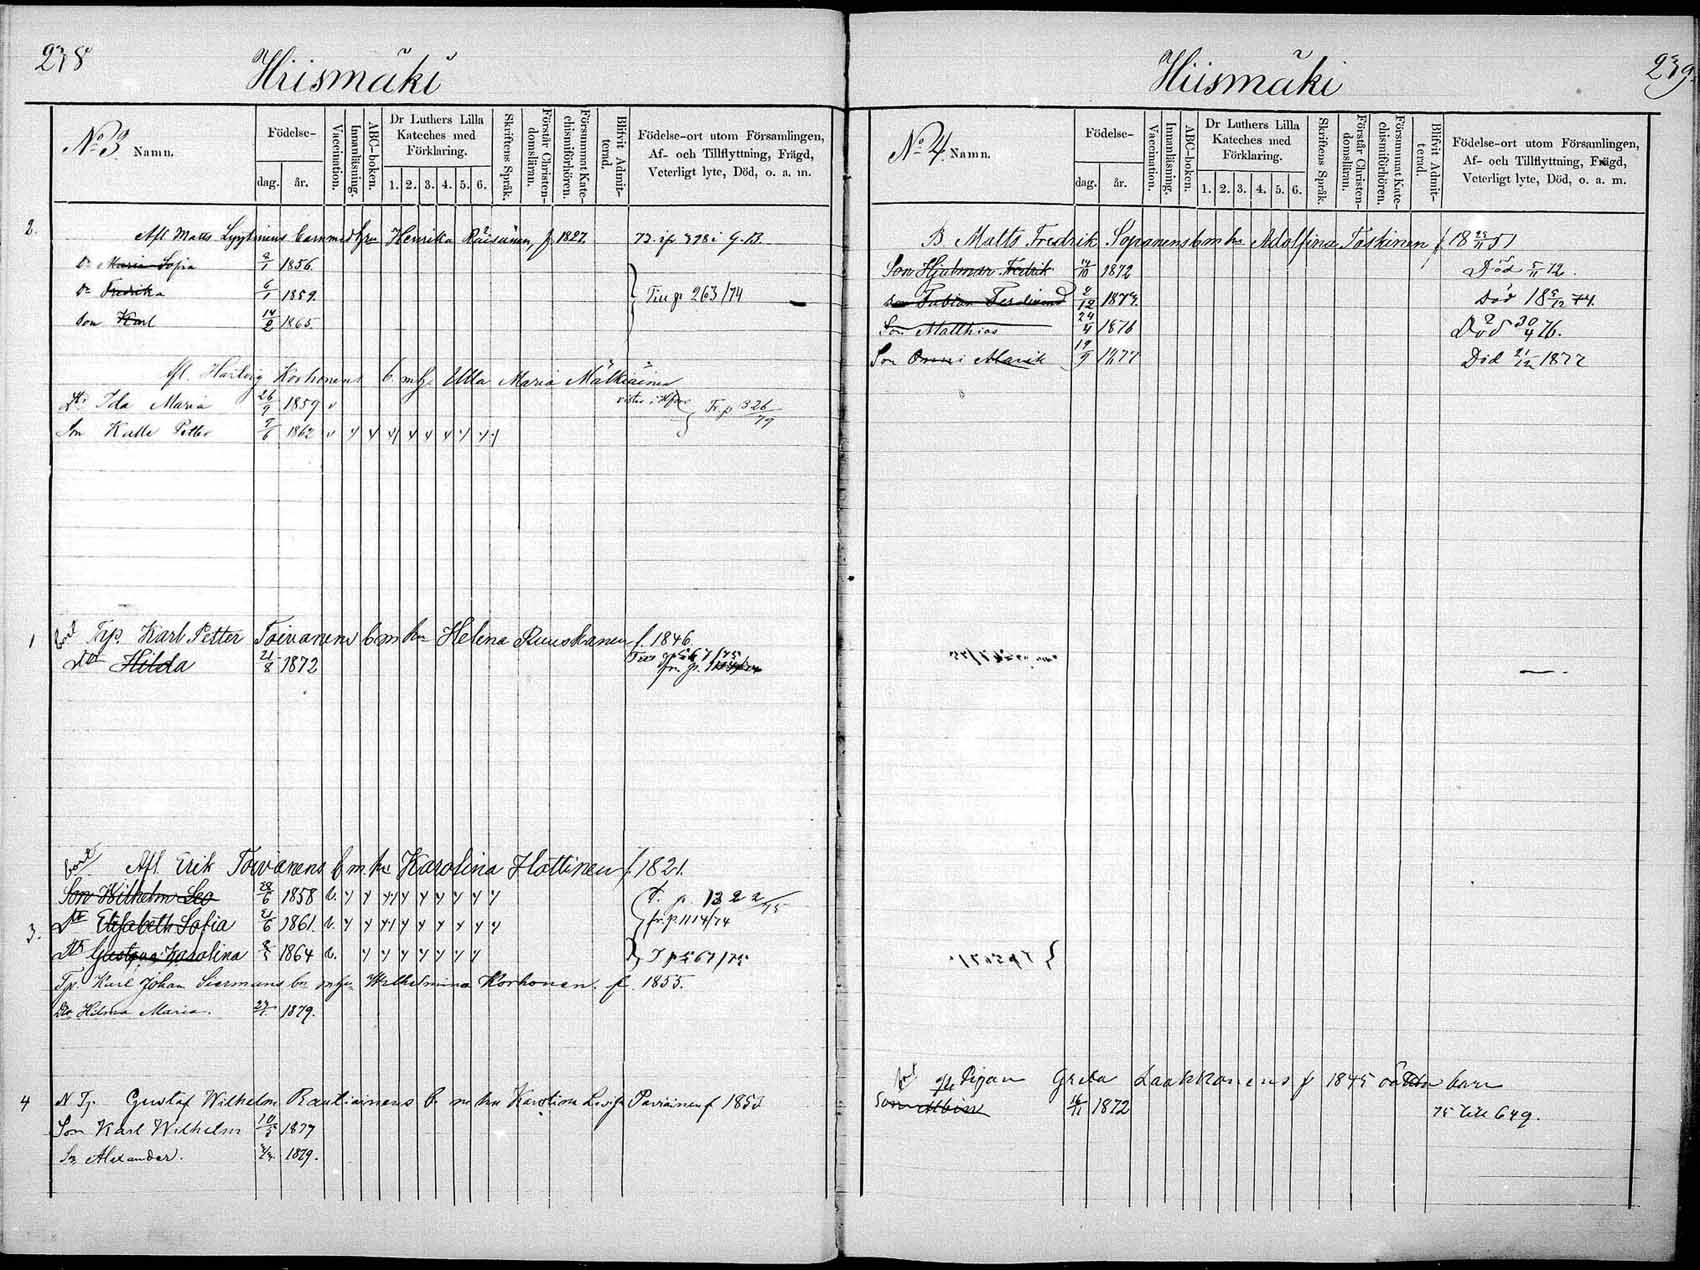 238
Hiismäki
No 3. Namn.
Födelse-
dag. år.
Vaccination.
Innanläsning.
ABC-boken.
Dr Luthers Lilla Kateches med Förklaring.
1. 2. 3. 4. 5. 6.
Skriftens Språk.
Förstår Christendomsläran.
Försummat Katechismiförhören.
Blifvit Admitterad.
Födelse-ort utom Församlingen,
Af- och Tillflyttning, Frägd,
Veterligt lyte, Död, o. a. m.
2. Afl Matts Lyytinens barn med hu Henrika Räisänen, f 1827. 73. ifr 398 i G.B.
Dr Maria Sofia 2/1 1856.
Dr Fredrika 6/1 1859. Till p 263/74
Son Karl 14/2 1865.
afl. Korhonens b. m h. Ulla Maria
Dtr Ida Maria 26/9 1859 v Tr. p 326/79
Son Kalle Petter 9/6 1862 v v v v v v v v v
1 bort Trp. Karl Petter Toivanens b m hu Helena Ruuskanen f. 1846
Dtr Hilda 21/8 1872 567/75
bort Afl. Erik Toivanens b m. hu Karolina Hottinen f. 1821.
Son Wilhelm Leo 28/6 1858 v. v v v v v v v v v T. p. 1322/75
3. Dtr Elisabeth Sofia 21/6 1861. v. v v v v v v v v v fr. p. 1114/74
Dtr Gustava Karolina 1864 v. v v v v v v v T p 567/75
Tp. Karl Johan Siermans b. m hu Wilhelmina Korhonen. f. 1855.
Dtr Hilma Maria. 1879.
4 N Tp. Gustaf Wilhelm Rautiainens b. m hu Karolina Lovisa Paviainen f 1853
Son Karl Wilhelm 10/5 1877
Son Alexander. 1879.
239
Hiismäki
No 4. Namn.
Födelse-
dag. år.
Vaccination.
Innanläsning.
ABC-boken.
Dr Luthers Lilla Kateches med Förklaring.
1. 2. 3. 4. 5. 6.
Skriftens Språk.
Förstår Christendomsläran.
Försummat Katechismiförhören.
Blifvit Admitterad.
Födelse-ort utom Församlingen,
Af- och Tillflyttning, Frägd,
Veterligt lyte, Död, o. a. m.
B Matts Fredrik Sopanens b m hu Adolfina Toskinen f 18 23/11 51
Son Hjalmar Fredrik 14/10 1872 Död 5/11 72.
Son Fabian Ferdinand 2/12 1873. Död 18 5/12 74.
Son Matthias 24/4 1876 Död 30/4 76.
Son Onni Alarik 19/9 1877 Död 21/12 1877
Pigan Greta Laakkonens f 1845 oäkta barn
Son Albin 1872 75 till 649.